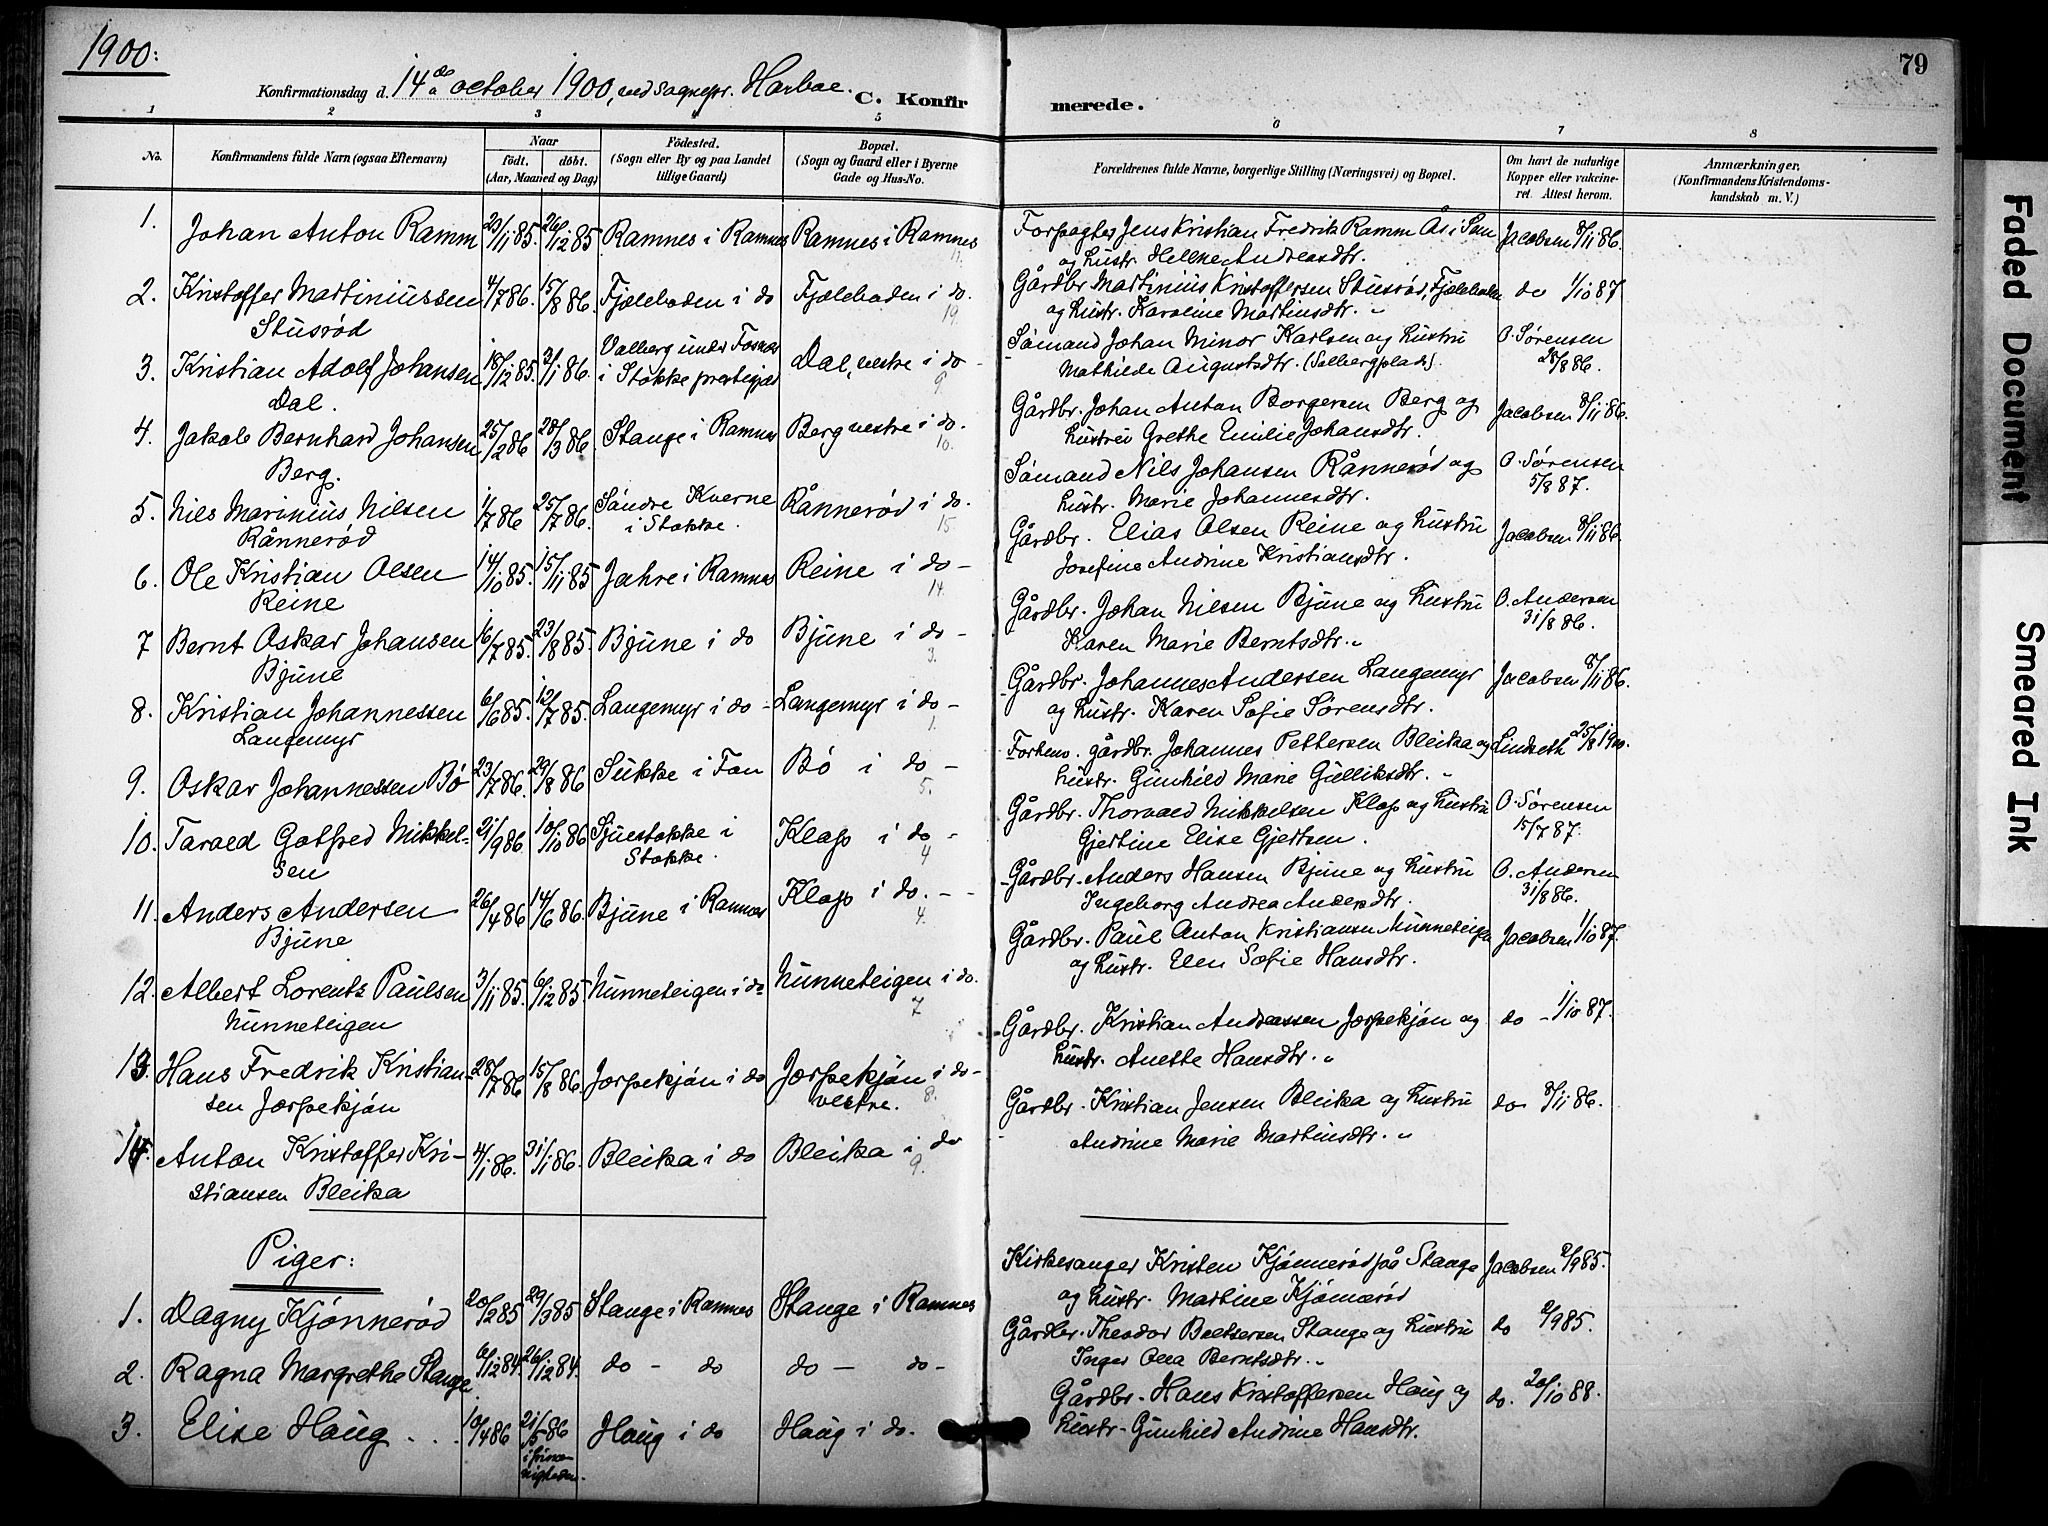 1900:
79
Konfirmationsdag d. 14de october 1900, ved sognepr. Harboe. C. Konfir merede.
1 2 3 4 5 6 7 8
No.
Konfirmandens fulde Navn (ogsaa Efternavn)
Naar
født. døbt.
(Aar, Maaned og Dag)
Födested.
(Sogn eller By og paa Landet
tillige Gaard)
Bopæl.
(Sogn og Gaard eller i Byerne
Gade og Hus-No.
Forældrenes fulde Navne, borgerlige Stilling (Næringsvei) og Bopæl.
Om havt de naturlige
Kopper eller vakcine-
ret. Attest herom.
Anmærkninger,
(Konfirmandens Kristendoms-
kundskab m. V.)
1. Johan Anton Ramm 23/11 85. 26/12 85 Ramnes i Ramnes Ramnes i Ramnes 11.
Forpagter Jens Kristian Fredrik Ramm Ås i Sem Jacobsen 8/11 86.
og hustr. Helene Andreasdtr.
2. Kristoffer Martiniussen 4/7 86. 15/8 86. Fjæleboden i do Fjæleboden i do. 19.
Stusrød
Gårdbr. Martinius Kristoffersen Stusrød, Fjæleboden do 1/10 87
og hustr. Karoline Martinsdtr. "
3. Kristian Adolf Johansen 18/12 85. 31/1 86. Valberg under Fosnæs Dal, vestre i do - 9.
Dal. i Stokke prestegjæld
Sømand Johan Minor Karlsen og hustru O. Sørensen
Mathilde Augustsdtr. (Solbergplads). 28/8 86.
4. Jakob Bernhard Johansen 25/2 86 28/3 86. Stange i Ramnes Berg vestre i do. 10.
Berg.
Gårdbr. Johan Anton Borgersen Berg og Jacobsen 8/11 86.
hustru Grethe Emilie Johansdtr.
5. Nils Marinius Nilsen 1/7 86 25/7 86. Søndre Kverne Rånnerød i do. 15
Rånnerød i Stokke.
Sømand Nils Johansen Rånnerød og O. Sørensen
hustr. Marie Johannesdtr. 5/8 87.
6. Ole Kristian Olsen 14/10 85. 15/11 85 Jahre i Ramnes Reine i do - 14.
Reine
Gårdbr. Elias Olsen Reine og hustru Jacobsen 8/11 86.
Josefine Andrine Kristiansdtr.
7 Bernt Oskar Johansen 16/7 85. 23/8 85. Bjune i do Bjune i do - 3.
Bjune
Gårdbr. Johan Nilsen Bjune og hustru O. Andersen
Karen Marie Berntsdtr. " 31/8 86.
8. Kristian Johannessen 6/6 85. 12/7 85. Langemyr i do - Langemyr i do - 1.
Langemyr
Gårdbr. Johannes Andersen Langemyr Jacobsen 8/11 86.
og hustr. Karen Sofie Sørensdtr.
9. Oskar Johannessen Bø 23/7 86. 29/8 86 Sukke i Fon Bø i do - 5.
Forhenv. gårdbr. Johannes Pettersen Bleika og Lindseth 25/8 1900.
hustr. Gunhild Marie Gulliksdtr. "
10. Tarald Gotfred Mikkel- 21/9 86 10/10 86 Sjuestokke i Klop i do - 4
sen Stokke.
Gårdbr. Thorvald Mikkelsen Klop og hustru O. Sørensen
Gjertine Elise Gjertsen. 15/7 87.
11. Anders Andersen 26/4 86 14/6 86. Bjune i Ramnes Klop i do. - - 4.
Bjune
Gårdbr. Anders Hansen Bjune og hustru O. Andersen
Ingeborg Andrea Andersdtr. 31/8 86.
12. Albert Lorents Paulsen 3/11 85. 6/12 85. Nunneteigen i do Nunneteigen i do. 7
Nunneteigen
Gårdbr. Paul Anton Kristiansen Nunneteigen Jacobsen 1/10 87.
og hustr. Elen Sofie Hansdtr.
13. Hans Fredrik Kristian- 28/7 86 15/8 86. Jorpekjøn i do Jorpekjøn i do - 8.
sen Jorpekjøn vestre.
Gårdbr. Kristian Andreassen Jorpekjøn og do - 1/10 87.
hustr. Anette Hansdtr. "
14. Anton Kristoffer Kri- 4/1 86. 31/1 86. Bleika i do Bleika i do 9.
stiansen Bleika
Gårdbr. Kristian Jensen Bleika og hustru do 8/11 86.
Andrine Marie Martinsdtr. "
Piger:
1. Dagny Kjønnerød 20/2 85 29/3 85 Stange i Ramnes Stange i Ramnes
Kirkesanger Kristen Kjønnerød på Stange Jacobsen 2/9 85.
og hustr. Martine Kjønnerød
2. Ragna Margrethe Stange 6/12 84. 26/12 84. do - do do - do -
Gårdbr. Theodor Beltsersen Stange og hustru do 2/9 85.
Inger Olea Berntsdtr. "
3. Elise Haug . . . 10/4 86 21/5 86 Haug i do Haug i do.
Gårdbr. Hans Kristoffersen Haug og do. 20/10 88.
hustr. Gunhild Andrine Hansdtr.
Faded Document
Smeared Ink